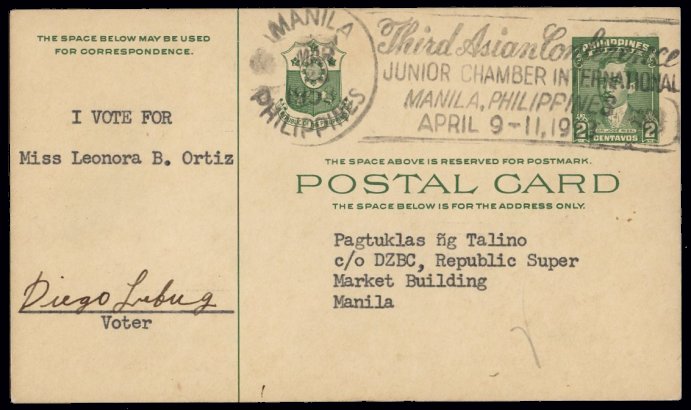 THE SPACE BELOW MAY BE USED
FOR CORRESPONDENCE.
I VOTE FOR
Miss Leonora B. Ortiz
Voter
MANILA
MAR
PHILIPPINES
Third Asian Conference
JUNIOR CHAMBER INTERNATIONAL
MANILA, PHILIPPINES
APRIL 9-11, 19
PHILIPPINES
2 CENTAVOS 2
THE SPACE ABOVE IS RESERVED FOR POSTMARK.
POSTAL CARD
THE SPACE BELOW IS FOR THE ADDRESS ONLY.
Pagtuklas n͠g Talino
c/o DZBC, Republic Super
Market Building
Manila